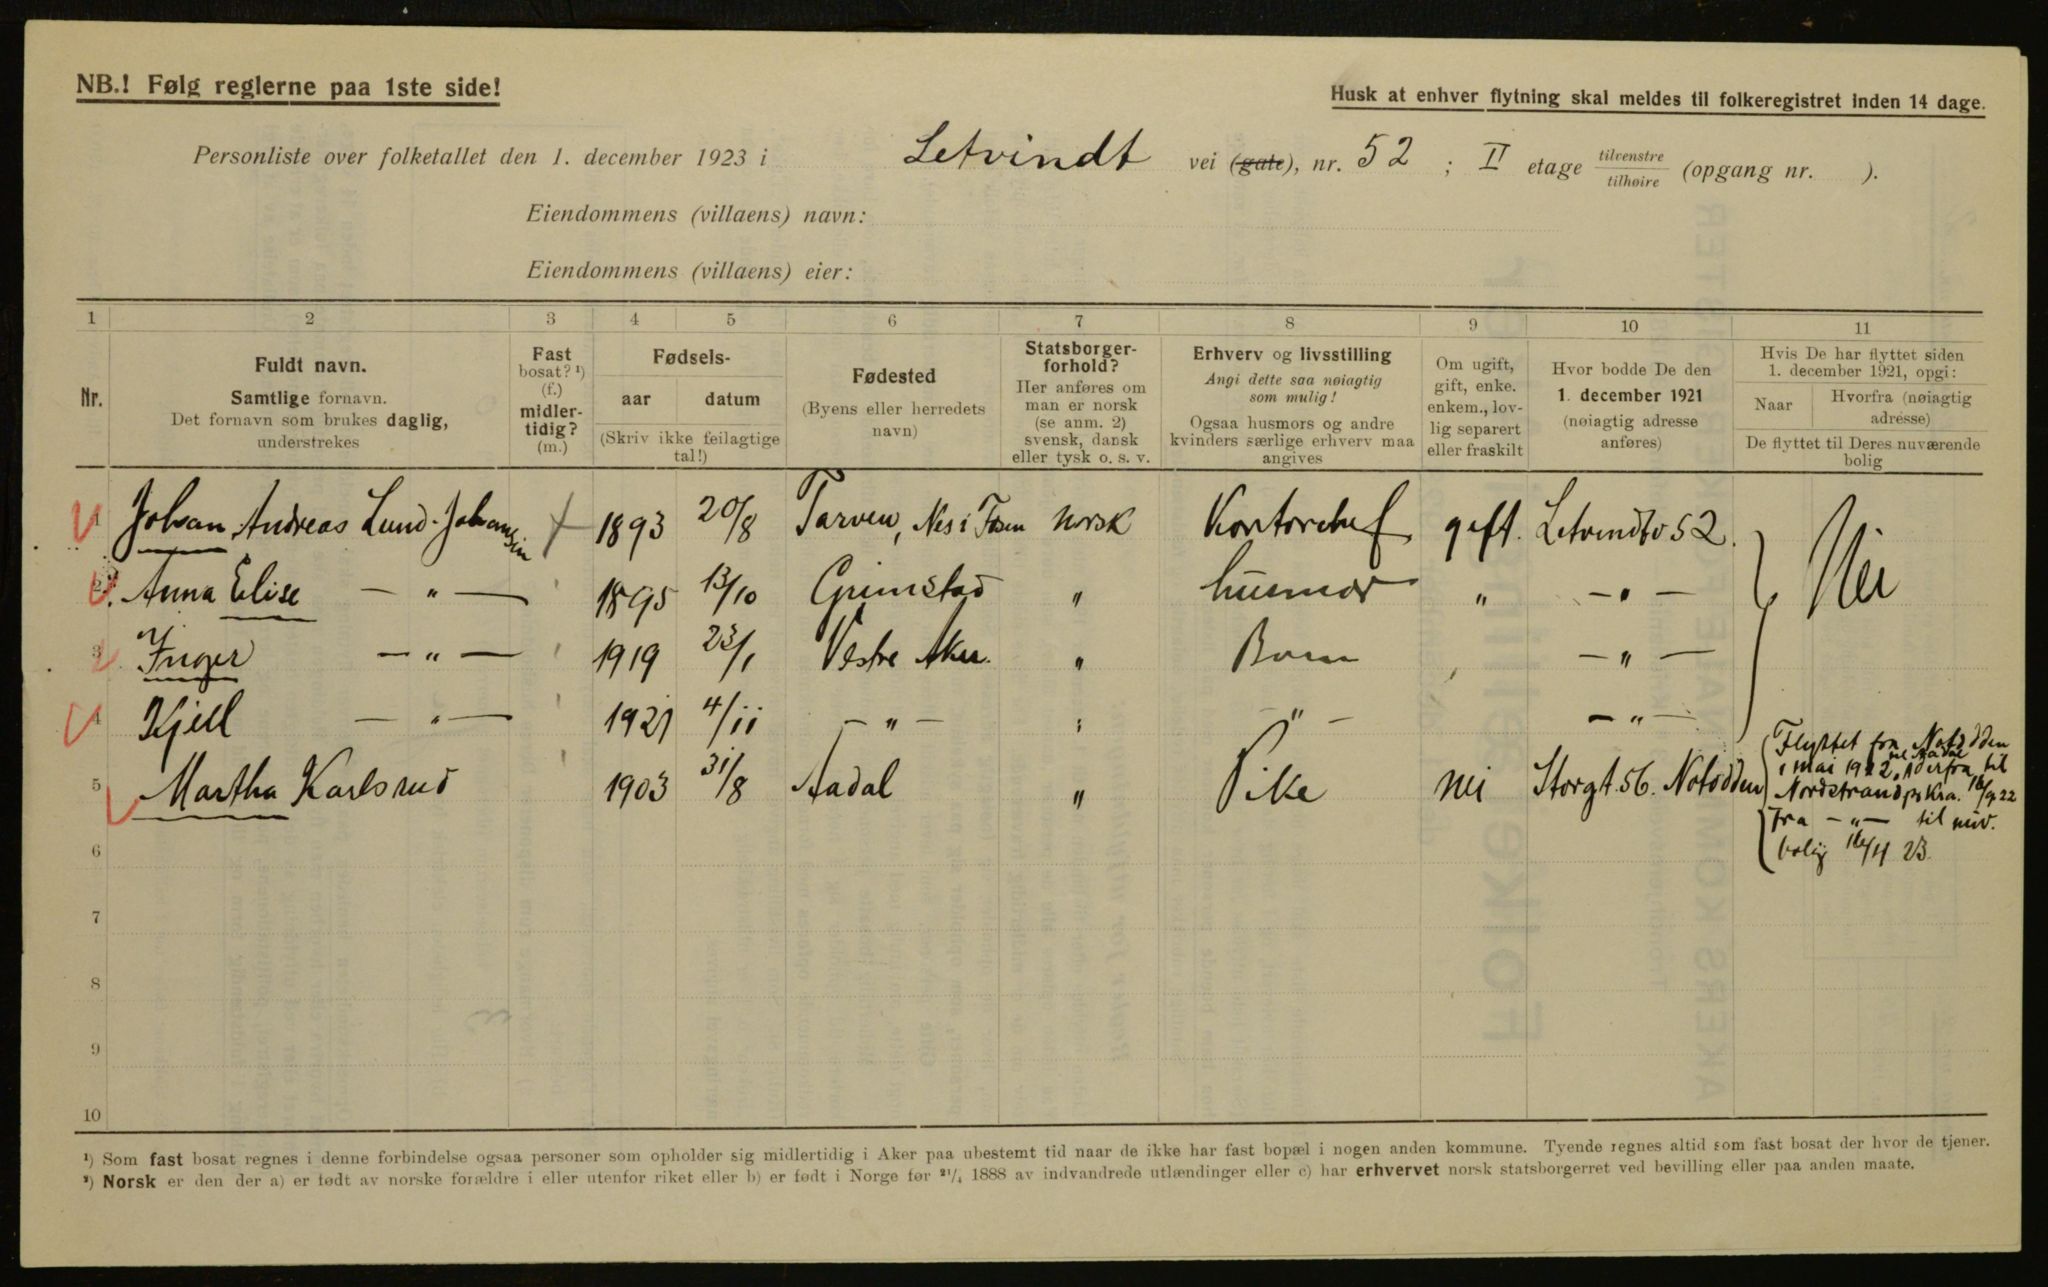 NB.! Følg reglerne paa 1ste side!
Husk at enhver flytning skal meldes til folkeregistret inden 14 dage.
Personliste over folketallet den 1. december 1923 i Letvindt vei (gate), nr. 52 ; II etage tilvenstre / tilhøire (opgang nr. ).
Eiendommens (villaens) navn:
Eiendommens (villaens) eier:
1 2 3 4 5 6 7 8 9 10 11
Nr.
Fuldt navn.
Samtlige fornavn.
Det fornavn som brukes daglig,
understrekes
Fast
bosat? ¹)
(f.)
midler-
tidig?
(m.)
Fødsels-
aar datum
(Skriv ikke feilagtige
tal!)
Fødested
(Byens eller herredets
navn)
Statsborger-
forhold?
Her anføres om
man er norsk
(se anm. 2)
svensk, dansk
eller tysk o. s. v.
Erhverv og livsstilling
Angi dette saa nøiagtig
som mulig!
Ogsaa husmors og andre
kvinders særlige erhverv maa
angives
Om ugift,
gift, enke.
enkem., lov-
lig separert
eller fraskilt
Hvor bodde De den
1. december 1921
(nøiagtig adresse
anføres)
Hvis De har flyttet siden
1. december 1921, opgi:
Naar
Hvorfra (nøiagtig
adresse)
De flyttet til Deres nuværende
bolig
1 Johan Andreas Lund-Johansen 1893 20/8 Tarven, Nes i Fosen norsk Kontorchef gift. Letvindtv 52. Nei
2 Anna Elise — " — 1895 13/10 Grimstad " husmor " — " —
3 Inger — " — 1919 23/1 Vestre Aker. " Barn — " —
4 Kjell — " — 1921 4/11 — " — — " — — " —
5 Martha Karlsrud 1903 31/8 Aadal " Pike nei Storgt. 56. Notodden
Flyttet fra Notodden
i mai 1922, derfra til
Nordstrand 16/9 22
fra — " — til nuv.
bolig 16/11 23.
6
7
8
9
10
¹) Som fast bosat regnes i denne forbindelse ogsaa personer som opholder sig midlertidig i Aker paa ubestemt tid naar de ikke har fast bopæl i nogen anden kommune. Tyende regnes altid som fast bosat der hvor de tjener.
²) Norsk er den der a) er født av norske forældre i eller utenfor riket eller b) er født i Norge før 21/4 1888 av indvandrede utlændinger eller c) har erhvervet norsk statsborgerret ved bevilling eller paa anden maate.